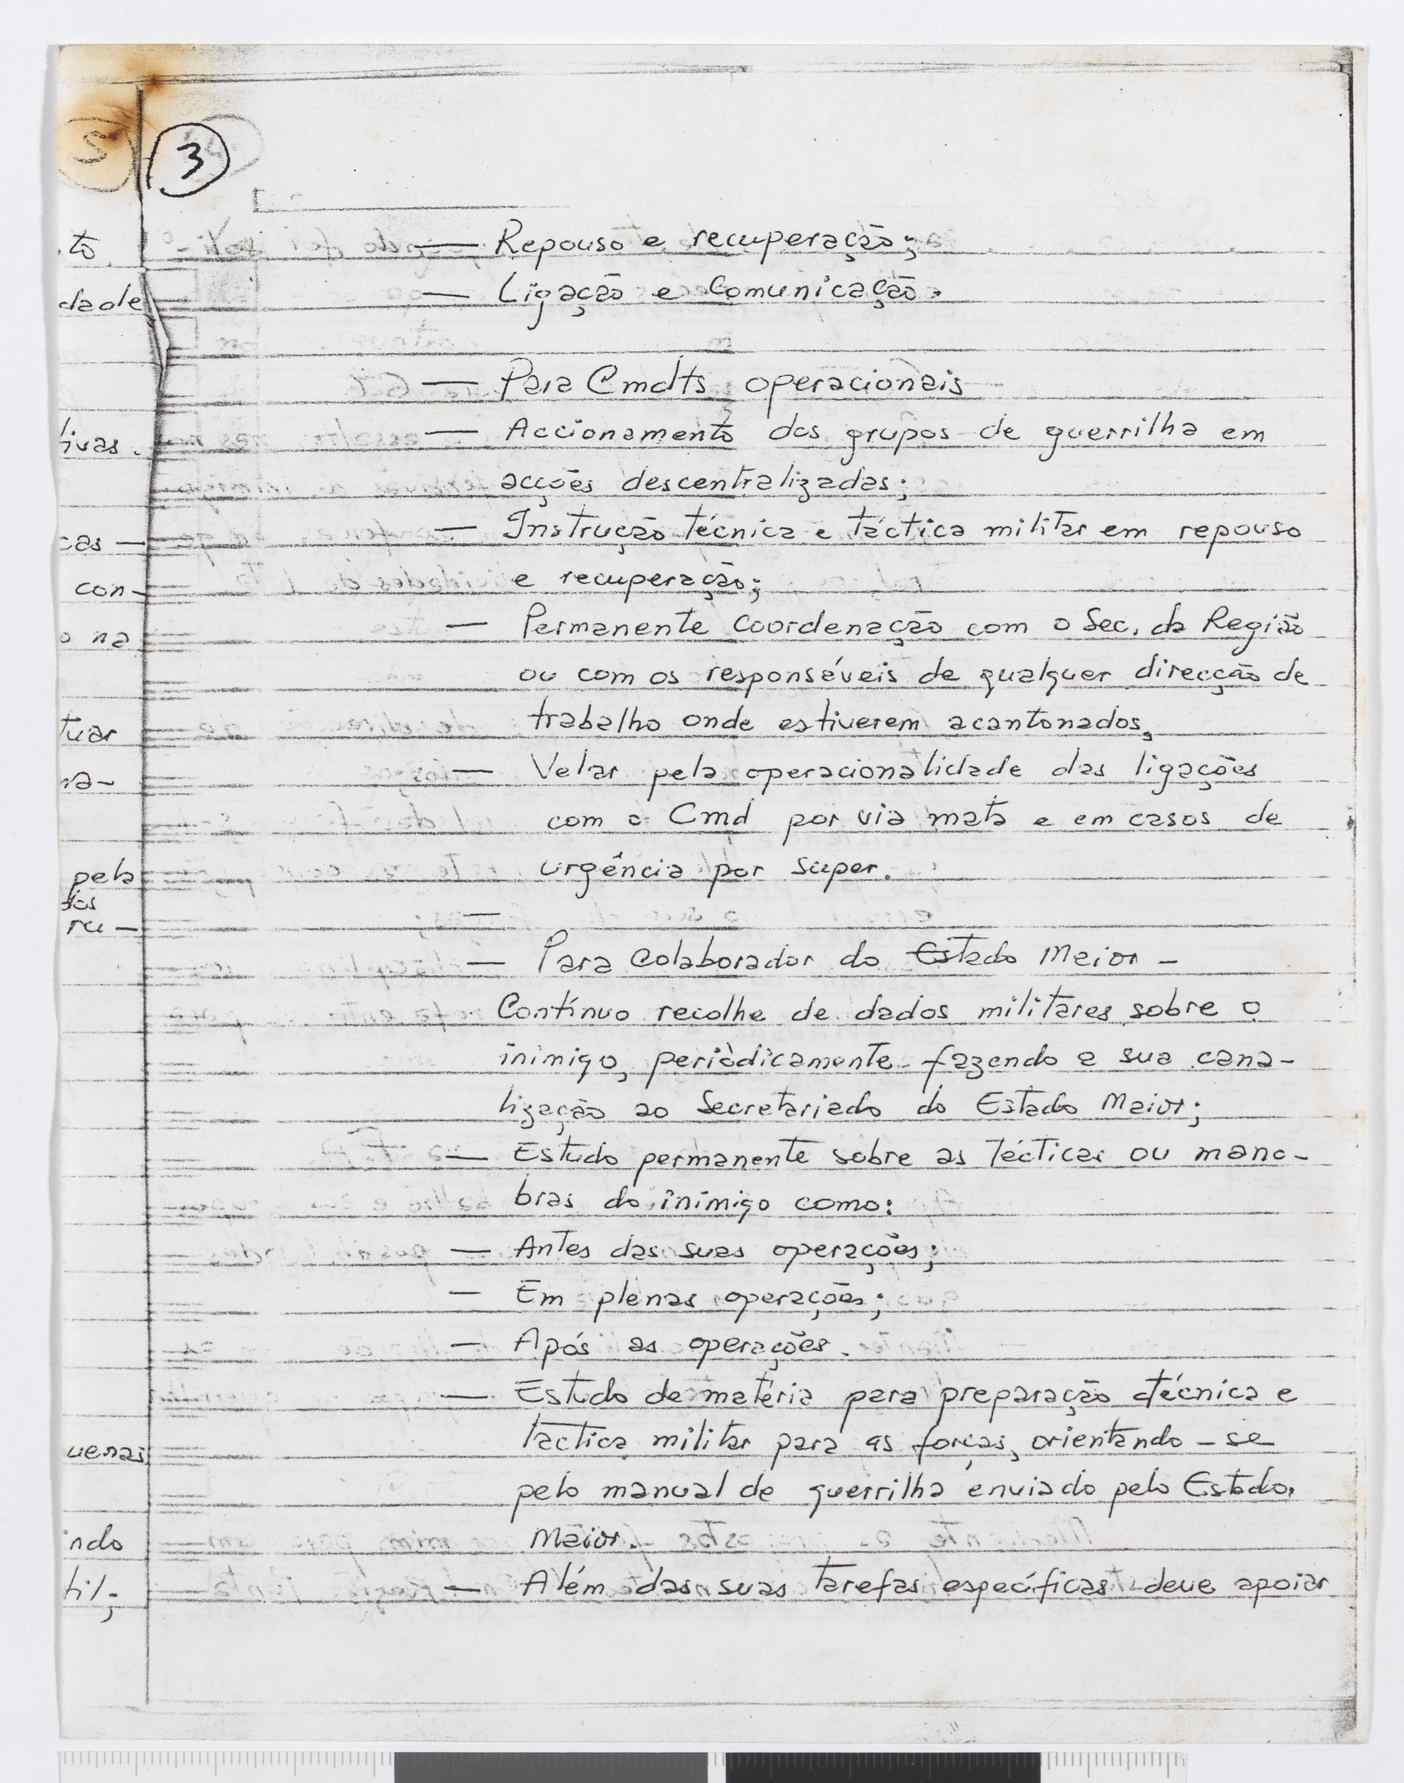 3
— Repouso e recuperação;
— Ligação e Comunicação.
— Para Cmdts operacionais
— Accionamento dos grupos de guerrilha em
acções descentralizadas;
— Instrução técnica e táctica militar em repouso
e recuperação;
— Permanente coordenação com o Sec. da Região
ou com os responsáveis de qualquer direcção de
trabalho onde estiverem acantonados,
— Velar pela operacionalidade das ligações
com o Cmd por via mata e em casos de
urgência por super.
—
— Para Colaborador do Estado Maior —
Contínuo recolhe de dados militares sobre o
inimigo, periòdicamente fazendo a sua cana-
lização ao Secretariado do Estado Maior;
— Estudo permanente sobre as tácticas ou mano-
bras do inimigo como:
— Antes das suas operações;
— Em plenas operações;
— Após as operações.
— Estudo de matéria para preparação técnica e
táctica militar para as forças, orientando-se
pelo manual de guerrilha enviado pelo Estado.
Maior.
— Além das suas tarefas específicas deve apoiar
to
dade
tivas.
cas —
con-
o na
tuar
na-
pela
ru —
uenas
indo
til;